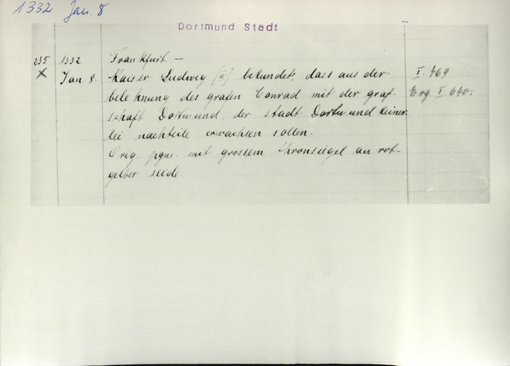 1332 Jan. 8
Dortmund Stadt
235 1332 Frankfurt —
x Jan 8. Kaiser Ludwig [IV] bekundet, dass aus der I. 469
belehnung des grafen Conrad mit der graf- Erg I 640.
schaft Dortmund, der stadt Dortmund keiner
lei nachteile erwachsen sollen.
Orig. pgm. mit grossem thronsiegel an rot-
gelber seide